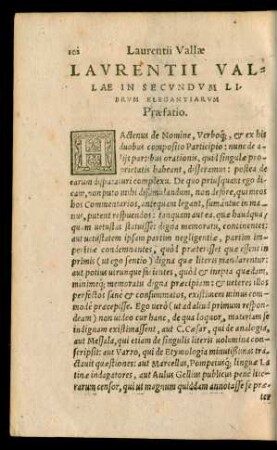 102 Laurentii Vallæ
LAVRENTII VAL-
LAE IN SECVNDVM LI-
BRVM ELEGANTIARVM
Præfatio.
HActenus de Nomine, Verboq́;, & ex his
duobus composito Participio: nunc de a-
lijs partibus orationis, quid singulæ pro-
prietatis habeant, disseramus: postea de
earum disputaturi complexu. De quo priusquam ego di-
cam, non puto mihi dissimulandum, non deesse, qui meos
hos Commentarios, antequam legant, sumantue in ma-
nus, putent respuendos: tanquam aut ea, quæ
uetustas statuisset digna memoratu, contineant:
aut uetustatem ipsam partim negligentiæ, partim im-
peritiæ condemnantes, quòd præterisset quæ essent in
primis (ut ego sentio) digna quæ literis mandarentur:
aut potius utrunque sic quòd & inepta quædam,
minimeq́; memoratu digna præcipiam: & ueteres illos
perfectos sanè & consummatos, existimem minus com-
modè præcepisse. Ego uerò (ut ad aliud primum respon-
deam) non uideo cur hanc, de qua loquor, materiam se
indignam existimassent, aut C. Cæsar, qui de analogia,
aut Messala, qui etiam de singulis literis uolumina con-
scripsit: aut Varro, qui de Etymologia minutissimas tra-
ctauit quæstiones: aut Marcellus, Pompeiusq́; linguæ La
tinæ indagatores, aut Aulus Gellius publicus penè lite-
rarum censor, qui ut magnum quiddam annotasse se præ-
ter